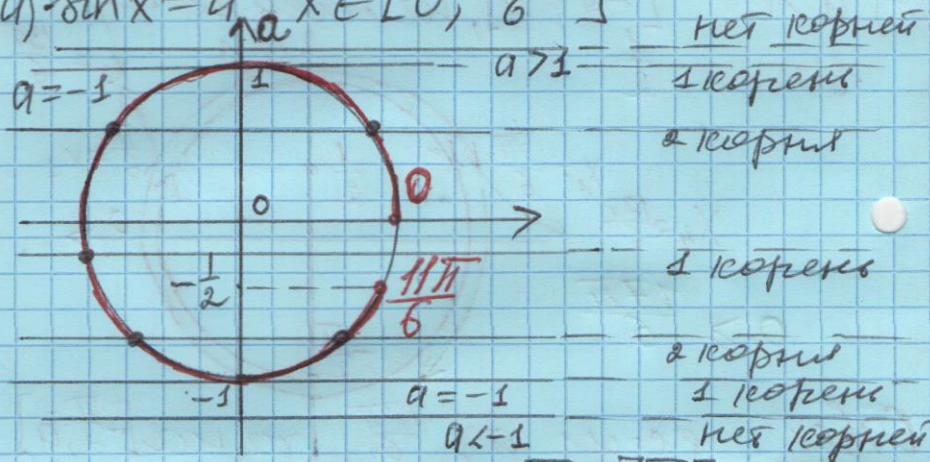 sin x = a x ∈ [0; 6 ]
a нет корней
a > 1
1 1 корень
a = -1
2 корня
0 0
1 корень
-1/2 11π/6
2 корня
-1 a = -1 1 корень
a < -1 нет корней